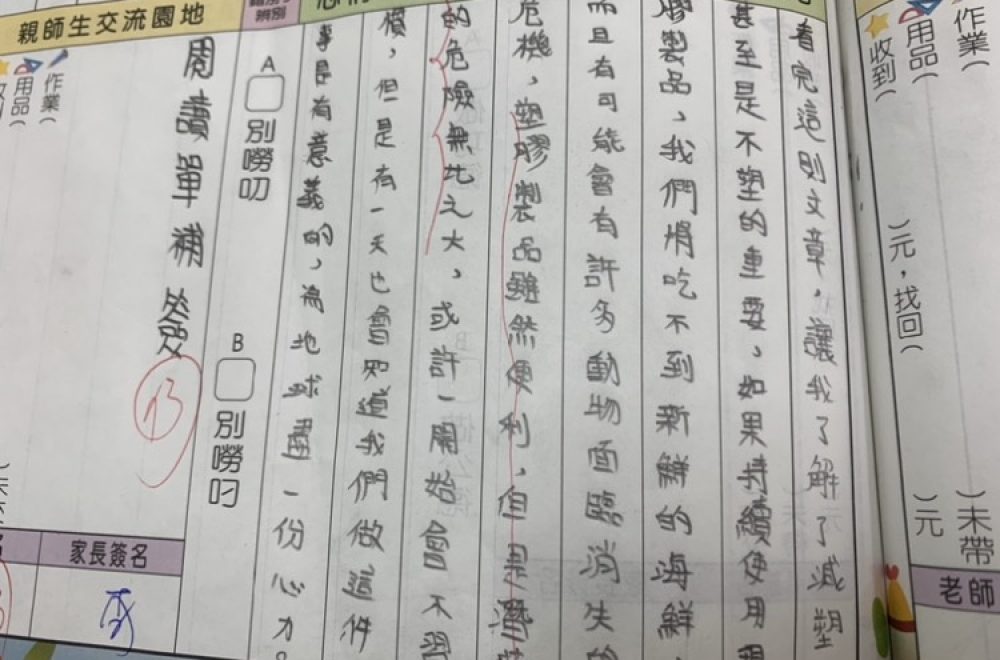 作業(　　)未帶
用品(
收到(　　)元，找回(　　)元
老師
看完這則文章，讓我了解了減塑
甚至是不塑的重要，如果持續使用
膠製品，我們將吃不到新鮮的海鮮，
而且有可能會有許多動物面臨消失的
危機，塑膠製品雖然便利，但是潛藏
的危險無比之大，或許一開始會不習
慣，但是有一天也會知道我們做這件
事是有意義的，為地球盡一份心力。
A 別嘮叨
B 別嘮叼
親師生交流園地
閱讀單補簽
作業(
用品(
收到(
家長簽名